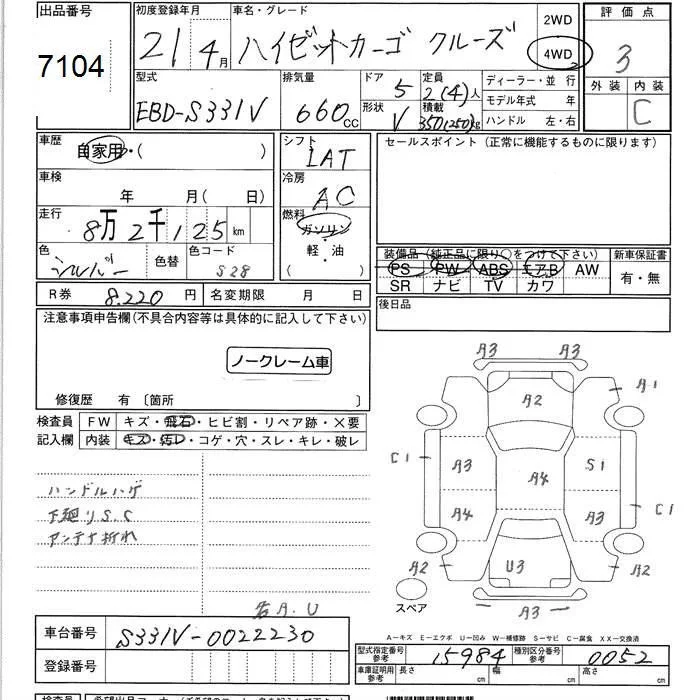 出品番号 初度登録年月 車名・グレード 評価点
7104 21年4月 ハイゼットカーゴ クルーズ 2WD 4WD 3
型式 排気量 ドア 5 定員 2(4)人 ディーラー・並行 外装 内装
EBD-S331V 660cc 形状 V 積載 350(250)kg モデル年式 年 C
ハンドル 左・右
車歴 シフト セールスポイント (正常に機能するものに限ります)
自家用・( ) IAT
車検 冷房
年 月( 日) AC
走行 燃料
8万2千125km ガソリン
色 色替 色コード 軽・油 装備品 (純正品に限り○をつけて下さい) 新車保証書
シルバー S28 ( ) PS PW ABS エアB AW 有・無
R券 8.220円 名変期限 月 日 SR ナビ TV カワ
注意事項申告欄(不具合内容等は具体的に記入して下さい) 後日品
ノークレーム車
修復歴 有 〔箇所 〕
検査員 FW キズ・飛石・ヒビ割・リペア跡・×要
記入欄 内装 キズ・汚レ・コゲ・穴・スレ・キレ・破レ
A3 A3
A2 A1
C1 A3 A4 S1
A4 A3 C1
A2 U3 A2
スペア A3
ハンドルハゲ
下廻りS.C
アンテナ折れ
A.U
A-キズ E-エクボ U-凹み W-補修跡 S-サビ C-腐食 XX-交換済
車台番号 S331V-0022230 型式指定番号 参考 15984 種別区分番号 参考 0052
登録番号 車庫証明用 参考 長さ cm 幅 cm 高さ cm